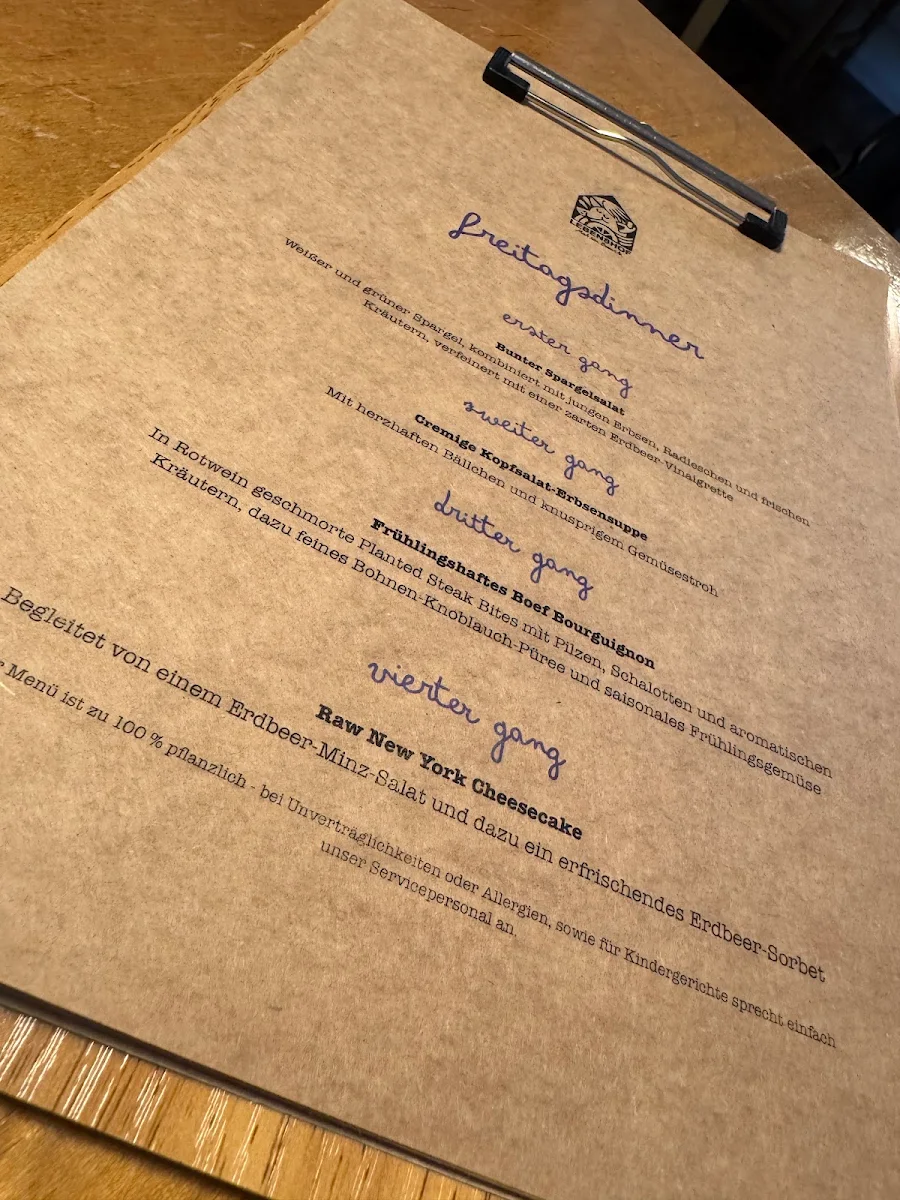 LEBENSHOF
freitagsdinner
erster gang
Bunter Spargelsalat
Weißer und grüner Spargel, kombiniert mit jungen Erbsen, Radieschen und frischen
Kräutern, verfeinert mit einer zarten Erdbeer-Vinaigrette
zweiter gang
Cremige Kopfsalat-Erbsensuppe
Mit herzhaften Bällchen und knusprigem Gemüsestroh
dritter gang
Frühlingshaftes Boef Bourguignon
In Rotwein geschmorte Planted Steak Bites mit Pilzen, Schalotten und aromatischen
Kräutern, dazu feines Bohnen-Knoblauch-Püree und saisonales Frühlingsgemüse
vierter gang
Raw New York Cheesecake
Begleitet von einem Erdbeer-Minz-Salat und dazu ein erfrischendes Erdbeer-Sorbet
Menü ist zu 100 % pflanzlich - bei Unverträglichkeiten oder Allergien, sowie für Kindergerichte sprecht einfach
unser Servicepersonal an.